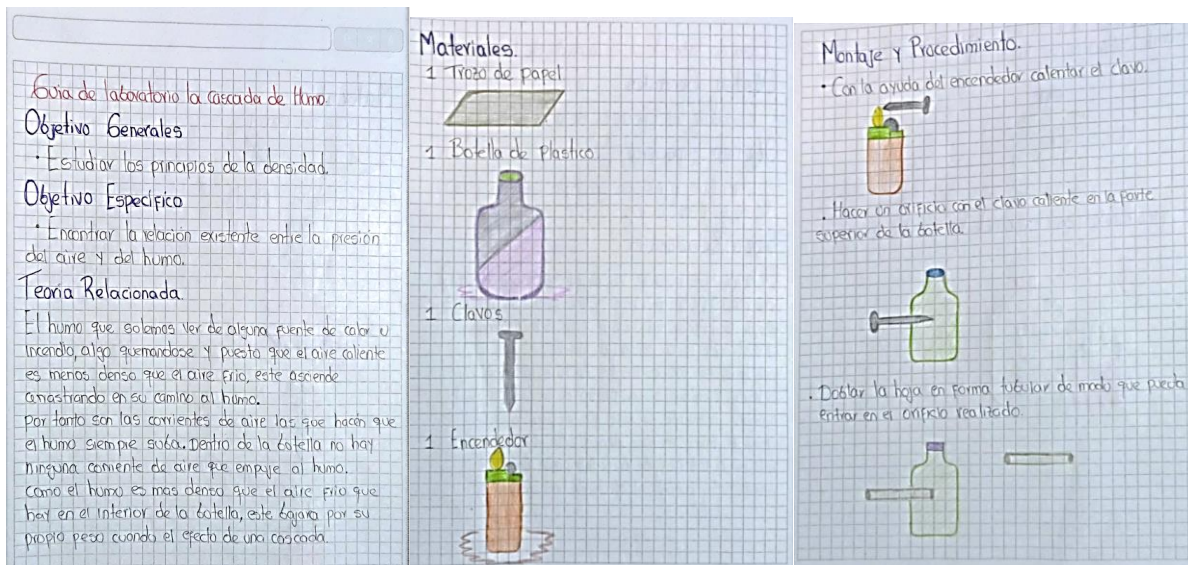 Guia de laboratorio la cascada de Humo
Objetivo Generales
· Estudiar los principios de la densidad.
Objetivo Específico
· Encontrar la relación existente entre la presión
del aire y del humo.
Teoria Relacionada
El humo que solemos ver de alguna fuente de calor u
incendio, algo quemandose y puesto que el aire caliente
es menos denso que el aire frio, este asciende
arrastrando en su camino al humo.
por tanto son las corrientes de aire las que hacen que
el humo siempre suba. Dentro de la botella no hay
ninguna corriente de aire que empuje al humo.
como el humo es mas denso que el aire frio que
hay en el interior de la botella, este bajara por su
propio peso cuando el efecto de una cascada.
Materiales.
1 Trozo de papel
1 Botella de Plastico
1 Clavos
1 Encendedor
Montaje y Procedimiento.
· Con la ayuda del encendedor calentar el clavo.
. Hacer un orificio con el clavo caliente en la parte
superior de la botella.
. Doblar la hoja en forma tubular de modo que pueda
entrar en el orificio realizado